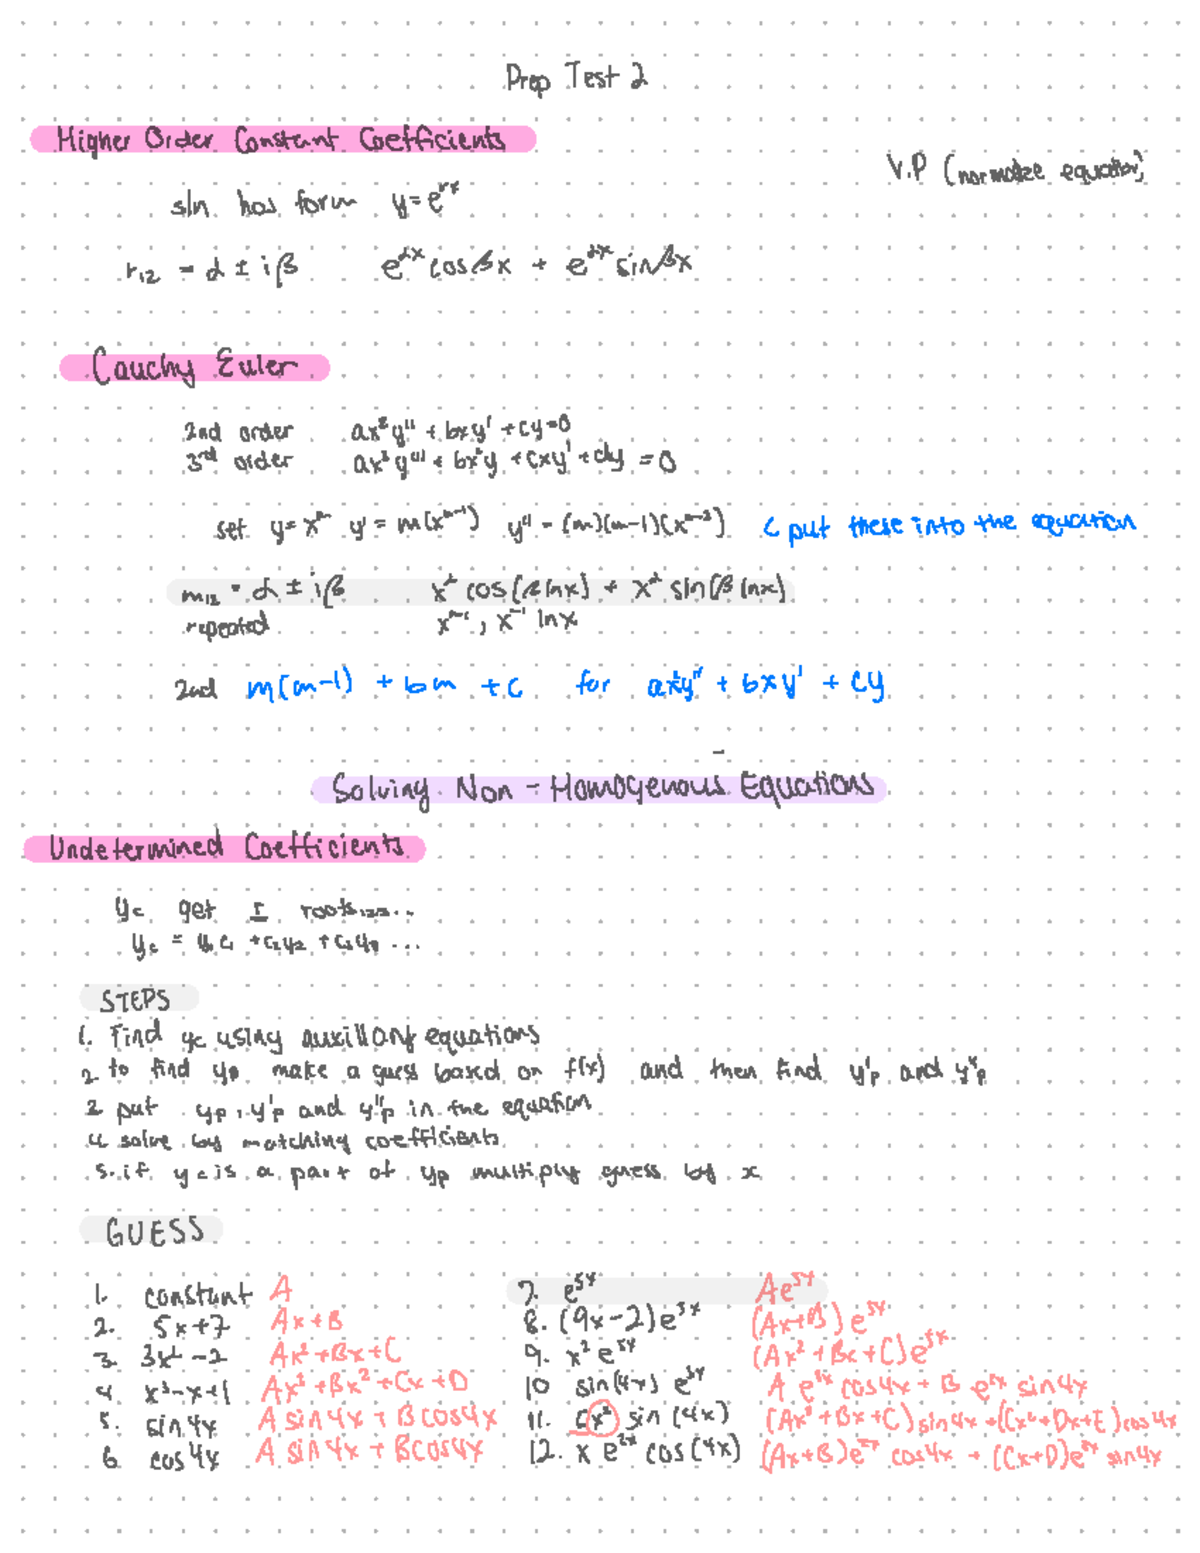 Prep Test 2
Higher Order Constant Coefficients
V.P (normalize equation)
sln has form y = e^rx
r₁₂ = α ± iβ e^αx cosβx + e^αx sinβx
Cauchy Euler
2nd order ax²y'' + bxy' + cy = 0
3rd order ax³y''' + bx²y + cxy' + dy = 0
set y = x^m y' = m(x^m-1) y'' = (m)(m-1)(x^m-2) put these into the equation
m₁₂ = α ± iβ x^α cos(β lnx) + x^α sin(β lnx)
repeated x^-1, x^-1 lnx
2nd m(m-1) + bm + c for ax²y'' + bxy' + cy
Solving Non-Homogenous Equations
Undetermined Coefficients
yc get r roots₁₂₃...
yc = + c₂y₂ + c₃y₃ ...
STEPS
1. Find yc using auxillary equations
2 to find yp make a guess based on f(x) and then find y'p and y''p
2 put yp, y'p and y''p in the equation
4 solve by matching coefficients
5. if yc is a part of yp multiply guess by x
GUESS
1. constant A
2. 5x+7 Ax+B
3. 3x²-2 Ax²+Bx+C
4. x³-x+1 Ax³+Bx²+Cx+D
5. sin4x A sin4x + B cos4x
6. cos4x A sin4x + B cos4x
7. e^5x Ae^5x
8. (9x-2)e^5x (Ax+B)e^5x
9. x²e^5x (Ax²+Bx+C)e^5x
10 sin(4x) e^3x A e^3x cos4x + B e^3x sin4x
11. 5x² sin(4x) (Ax²+Bx+C)sin4x+(Cx²+Dx+E)cos4x
12. x e^2x cos(4x) (Ax+B)e^2x cos4x + (Cx+D)e^2x sin4x